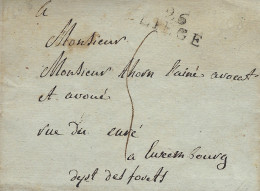 a
Monsieur
96
LIEGE
Monsieur thorn l'ainé avocat
et avoué
rue du curé
a Luxembourg
dept des forets